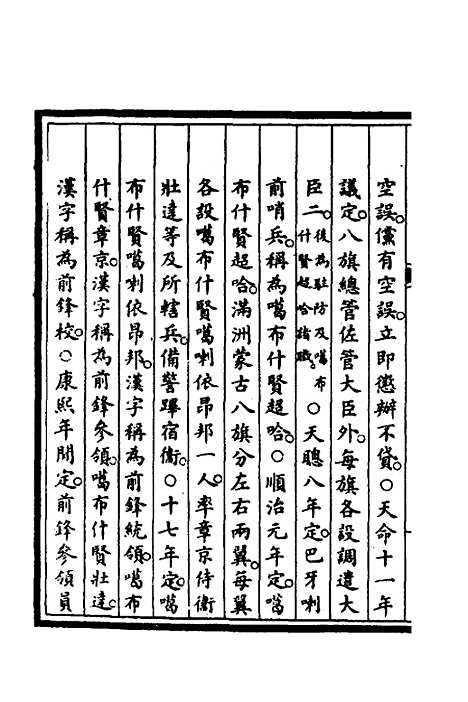 空誤。儻有空誤。立即懲辦不貸。○天命十一年
議定。八旗總管佐管大臣外。每旗各設調遣大
臣二。後為駐防及噶布什賢超哈諸職。○天聰八年定。巴牙喇
前哨兵。稱為噶布什賢超哈。○順治元年定。噶
布什賢超哈。滿洲蒙古八旗分左右兩翼。每翼
各設噶布什賢噶喇依昂邦一人。率章京侍衛
壯達等及所轄兵。備警蹕宿衛。○十七年定。噶
布什賢噶喇依昂邦。漢字稱為前鋒統領。噶布
什賢章京。漢字稱為前鋒參領。噶布什賢壯達。
漢字稱為前鋒校。○康熙年間定。前鋒參領員